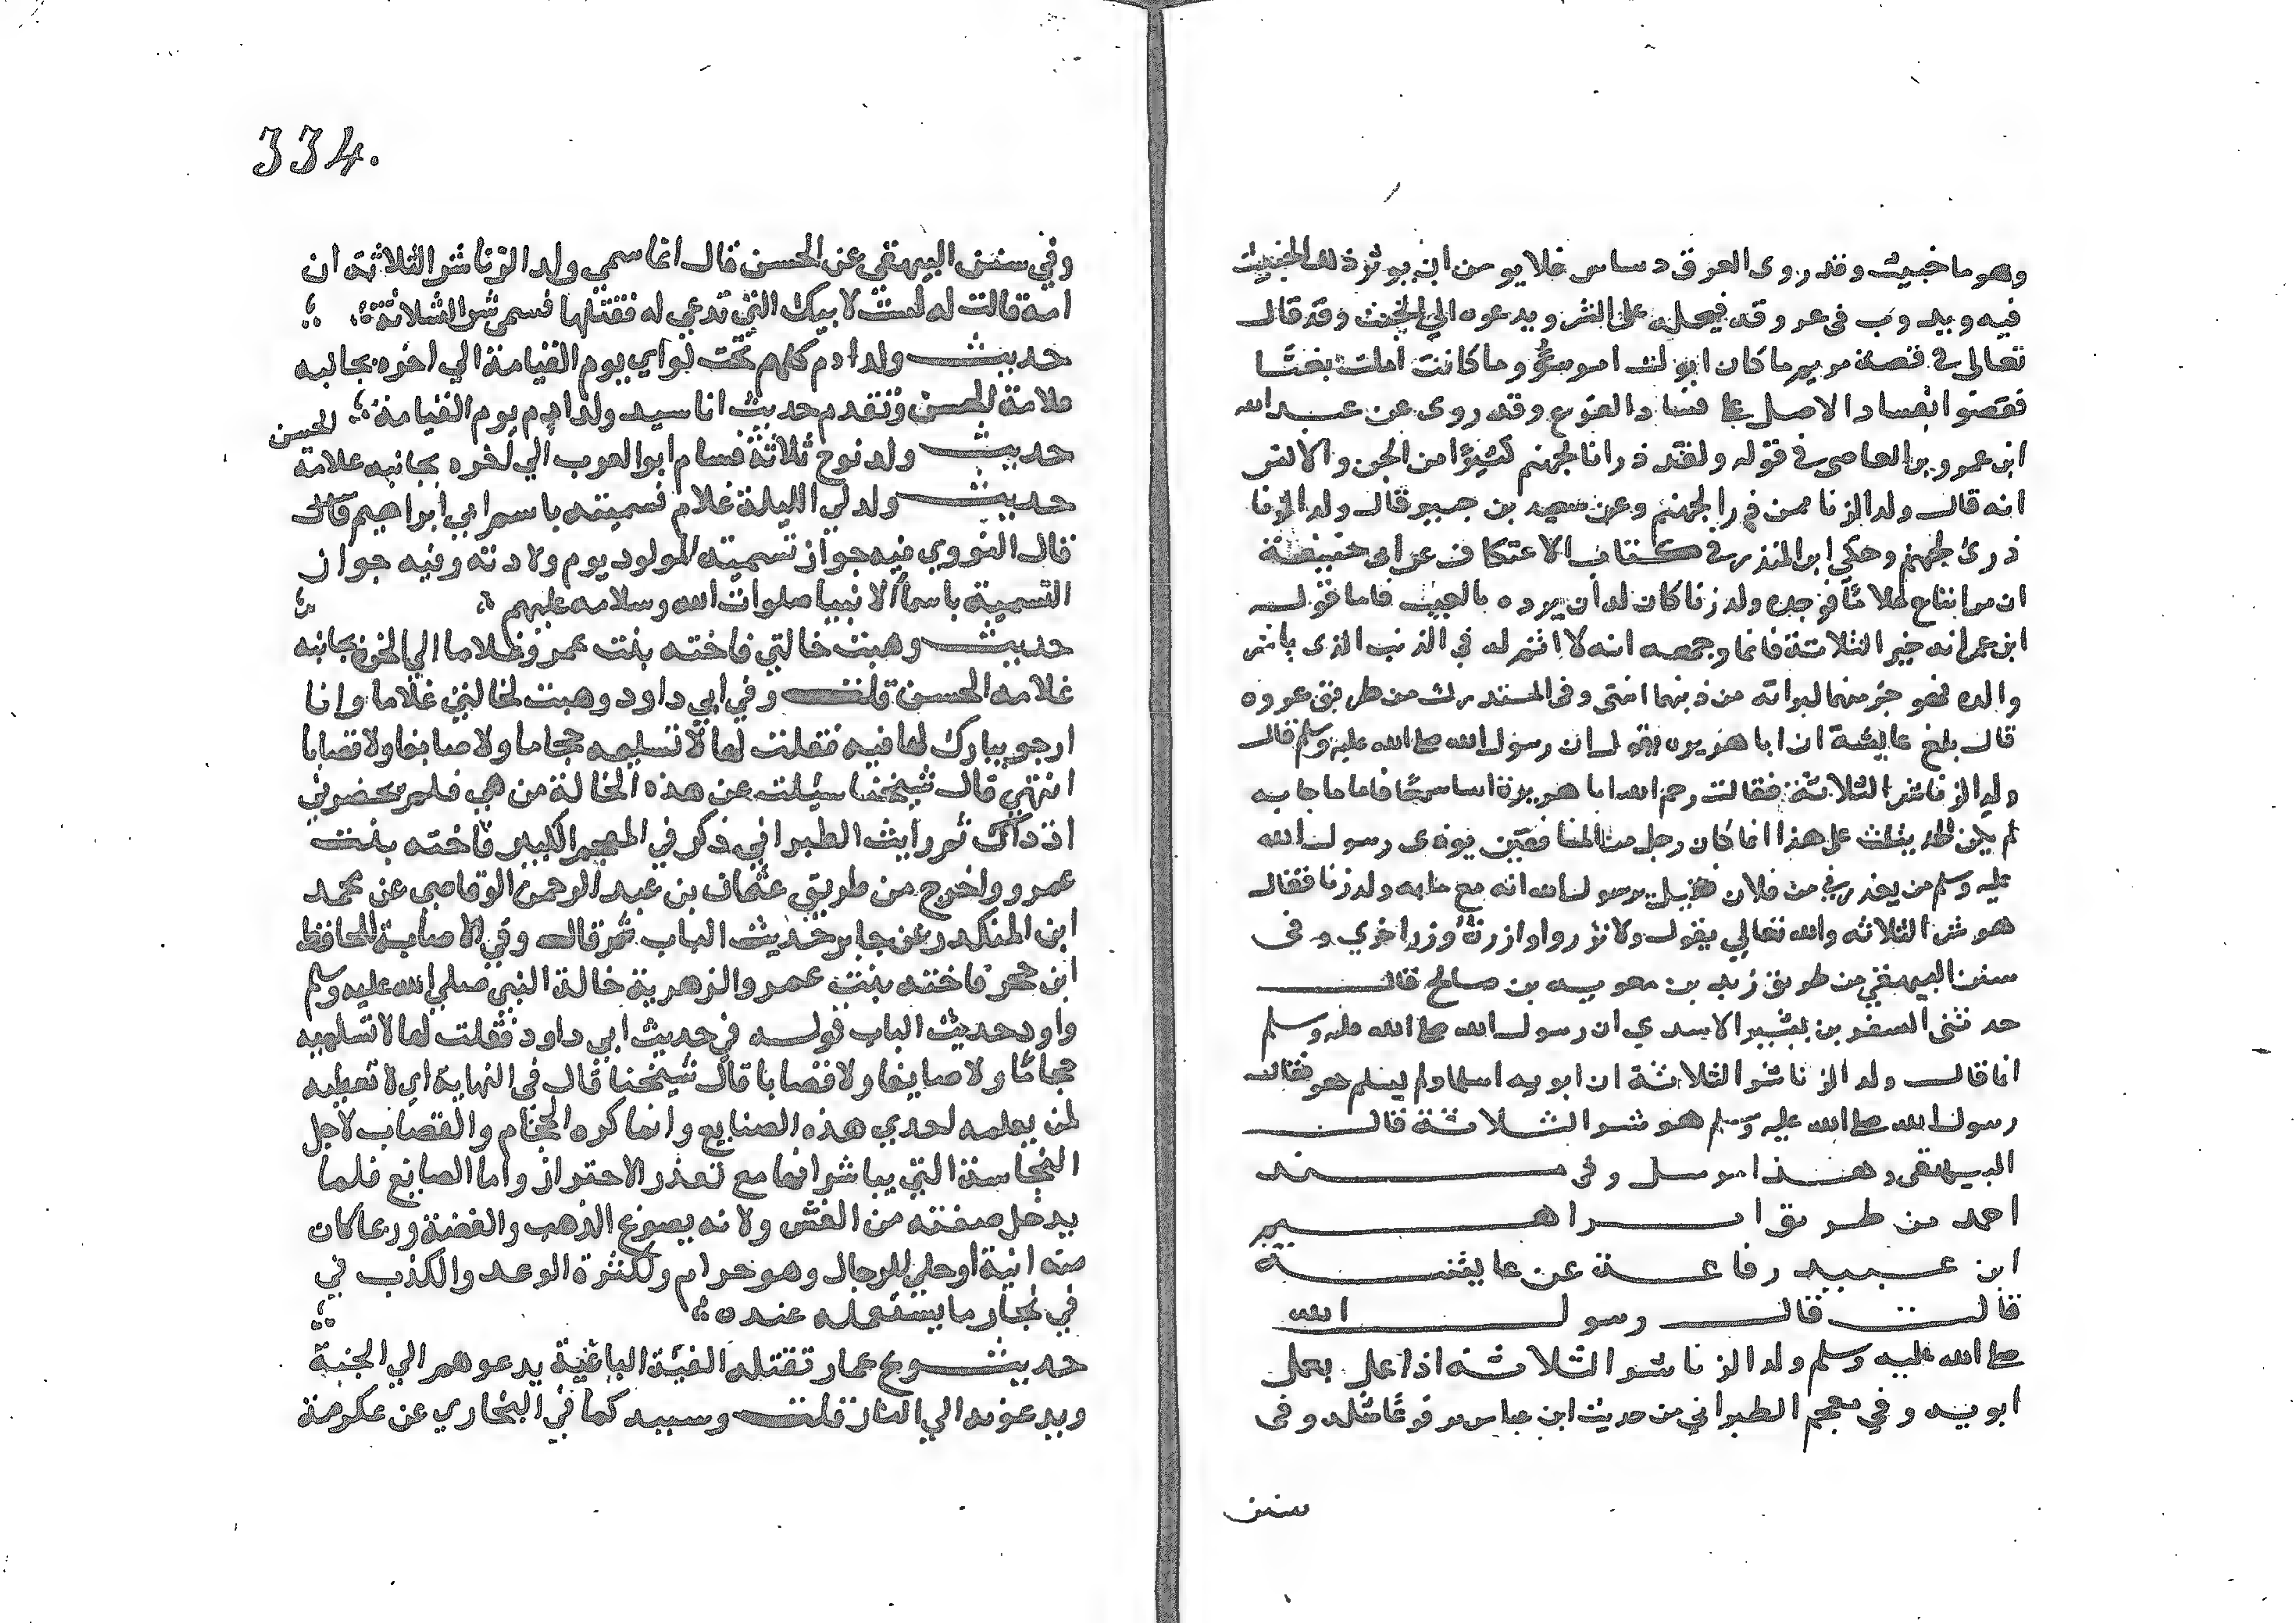 وهو ما خبيث وقد روى العرق دساس فلا يومن ان يوثر ذلك الخبيث
فيه ويدوب فى عروقه فيحمله على الشر ويدعوه الي الخبث وقد قال
تعالى فى قصة مريم ما كان ابوك امرء سوء وما كانت املك بغيًا
فقضوا بفساد الاصل على فساد الفرع وقد روى عن عبد الله
ابن عمرو بن العاصى فى قوله ولقد ذرانا لجهنم كثيرًا من الجن والانس
انه قال ولد الزنا ممن ذرا لجهنم وعن سعيد بن جبير قال ولد الزنا
ذرئ لجهنم وحكى ابن المنذر فى كتاب الاعتكاف عن ابى حنيفة
ان من ابتاع غلامًا فوجده ولد زنا كان له ان يرده بالعيب فاما قول
ابن عمر انه خير الثلاثة فانما وجهه انه لا اثم له في الذنب الذى باشر
والده فهو خير منهما لبراته من ذنبهما انتى وفى المستدرك من طريق عروه
قال بلغ عايشة ان ابا هريره يقول ان رسول الله صلى الله عليه وسلم قال
ولد الزنا شر الثلاثة فقالت رحم الله ابا هريرة اسا سمعًا فاسا ما جابه
لم يكن الحديث على هذا انما كان رجل من المنافقين يوذى رسول الله
عليه وسلم من يعذرني من فلان فقيل يرسول الله انه مع ما به ولد زنا فقال
هو شر الثلاثه والله تعالي يقول ولا تزر وازرة وزر اخري وفى
سنن البيهقي من طريق زيد بن معويه بن صالح قال
حدثنى السفر بن بشير الاسدي ان رسول الله صلى الله عليه وسلم
انما قال ولد الزنا شر الثلاثة ان ابويه اسلما ولم يسلم هو فقال
رسول الله صلى الله عليه وسلم هو شر الثلاثة قال
البيهقى وهذا مرسل وفى مسند
احمد من طريق ابراهيم
ابن عبيد رفاعة عن عايشة
قالت قال رسول الله
صلى الله عليه وسلم ولد الزنا شر الثلاثه اذا عمل بعمل
ابويه وفي معجم الطبراني من حديث ابن عباس مرفوعًا مثله وفى
سنن
334.
وفي سنن البيهقي عن الحسن قال انما سمي ولد الزنا شر الثلاثة ان
امه قالت له لست لابيك الذي تدعي له فقتلها فسمى شر الثلاثة
حديث ولد ادم كلهم تحت لواي يوم القيامة الي اخره بجانبه
علامة الحسن وتقدم حديث انا سيد ولد ادم يوم القيامة
حديث ولد نوح ثلاثة فسام ابو العرب الي اخره بجانبه علامة الحسن
حديث ولد لي الليلة غلام فسميته باسم ابي ابراهيم قال
قال النووي فيه جواز تسميته المولود يوم ولادته وفيه جواز
التسمية باسما الانبيا صلوات الله وسلامه عليهم
حديث وهبت خالتي فاخته بنت عمرو غلاما الي اخره بجانبه
علامه الحسن قلت وفي ابي داود وهبت لخالتي غلاما وانا
ارجو يبارك لها فيه فقلت لها لا تسليمه حجاما ولا صايغا ولا قصابا
انتهي قال شيخنا سيلت عن هذه الخالة من هي فلم يحضرني
اذ ذاك ثم رايت الطبراني ذكر في المعجم الكبير فاخته بنت
عمرو واخرج من طريق عثمان بن عبد الرحمن الوقاصى عن محمد
ابن المنكدر عن جابر حديث الباب ثم قال وفي الاصابة للحافظ
ابن حجر فاخته بنت عمرو الزهرية خالة النبي صلي الله عليه وسلم
واورد حديث الباب قوله في حديث ابي داود فقلت لها لا تسلميه
حجامًا ولا صايغا ولا قصابا قال شيخنا قال فى النهاية اي لا تعطيه
لمن يعلمه احدي هذه الصنايع وانما كره الحجام والقصاب لاجل
النجاسة التي يباشرانها مع تعذر الاحتراز واما الصايغ فلما
يدخل صنعته من الغش ولانه يصوغ الذهب والفضة وربما كان
منه انية او حلي للرجال وهو حرام ولكثرة الوعد والكذب في
في نجاز ما يستعمله عنده
حديث ويح عمار تقتله الفئة الباغية يدعوهم الي الجنة
ويدعونه الي النار قلت وسببه كما في البخاري عن عكرمة